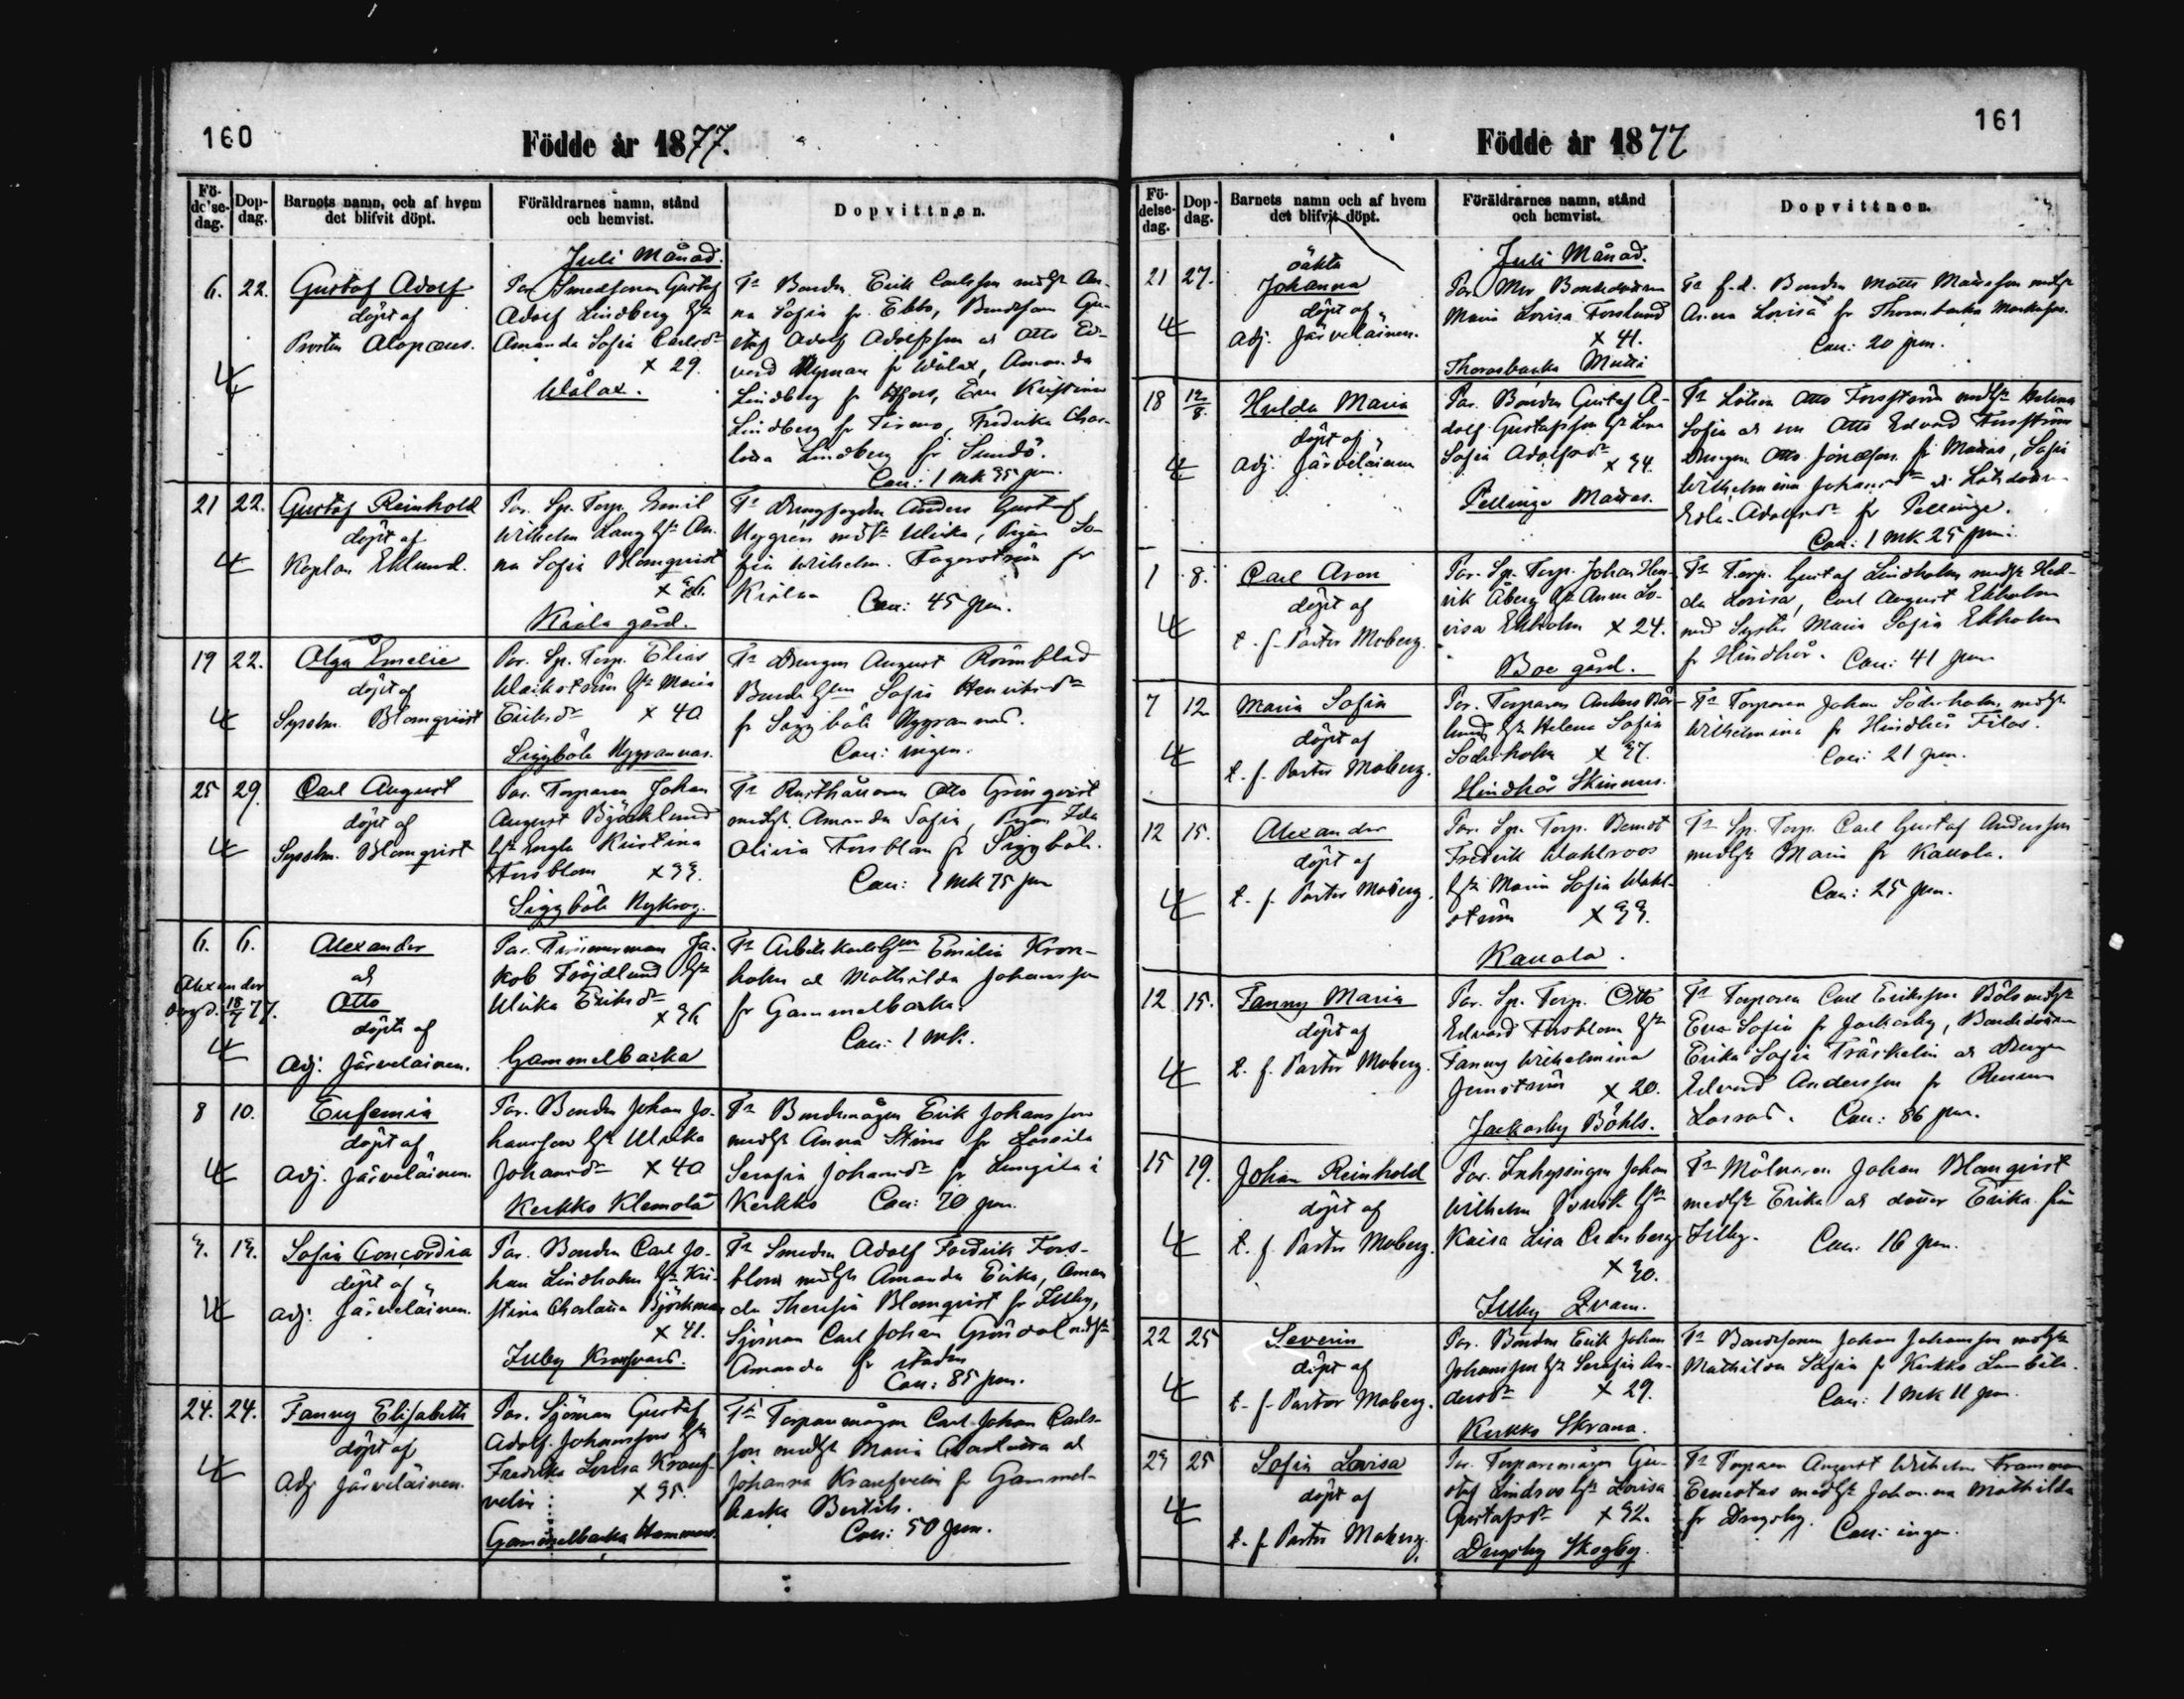 160
Födde år 1877.
Fö-
delse-
dag.
Dop-
dag.
Barnets namn, och af hvem
det blifvit döpt.
Föräldrarnes namn, stånd
och hemvist.
Dopvittnen.
Juli Månad.
6. 22.
Gustaf Adolf
döpt af
Prosten Alopæus.
Par. Smedsonen Gustaf
Adolf Lindberg hst
Amanda Sofia Carlsdr
x 29.
Wålax.
Fr Bonden Erik Carlsson medhst An-
na Sofia fr Ebbo, Bondeson Gu-
staf Adolf Adolfsson och Otto Ed-
vard Nyman fr Wålax, Amanda
Lindberg fr Hfors, Eva Kristina
Lindberg fr Tirmo, Fredrika Char-
lotta Lindberg fr Sundö.
Can: 1 mk 35 pm.
21 22.
Gustaf Reinhold
döpt af
Kaplan Eklund.
Par. Sp. Torp. Emil
Wilhelm Lang hst An-
na Sofia Blomqvist
x 36.
Kiala gård.
Fr Drängfogden Anders Gustaf
Nygren medhst Ulrika, Pigan So-
fia Wilhelm. Fagerström fr
Kiala
Can: 45 pm.
19 22.
Olga Emelie
döpt af
Sysslm. Blomqvist
Par. Sp. Torp. Elias
Wackström hst Maria
Eriksdr x 40
Siggböle Nygrannas.
Fr Drängen August Rönnblad
Bondehstn Sofia Henriksdr
fr Siggböle Nygrannas.
Can: ingen.
25 29.
Carl August
döpt af
Sysslm. Blomqvist
Par. Torparen Johan
August Björklund
hst Engla Kristina
Forsblom x 33.
Siggböle Nykrog.
Fr Rusthållaren Otto Grönqvist
medhst Amanda Sofia, Pigan Ida
Olivia Forsblom fr Siggböle.
Can: 1 mk 75 pm
6. 6.
Alexander
och
Otto
döpte af
Adj. Järveläinen.
Alexander
död 18/7 77.
Par. Timmerman Ja-
kob Fröjdlund hst
Ulrika Eriksdr
x 36
Gammelbacka
Fr Arbetskarlshstn Emilia Kron-
holm och Mathilda Johansson
fr Gammelbacka.
Can: 1 mk.
8 10.
Eufemia
döpt af
Adj. Järveläinen.
Par. Bonden Johan Jo-
hansson hst Ulrika
Johansdr x 40
Kerkko Klemola
Fr Bondemågen Erik Johansson
medhst Anna Stina fr Lassila
Serafia Johansdr fr Lungila i
Kerkko Can: 70 pm.
3. 13.
Sofia Concordia
döpt af
Adj. Järveläinen.
Par. Bonden Carl Jo-
han Lindholm hst Kri-
stina Charlotta Björkman
x 41.
Illby Krogsvars.
Fr Smeden Adolf Fredrik Fors-
blom medhst Amanda Erika, Aman
da Theresia Blomqvist fr Illby,
Sjöman Carl Johan Gröndal medhst
Amanda fr staden
Can: 85 pm.
24. 24.
Fanny Elisabeth
döpt af
Adj. Järveläinen.
Par. Sjöman Gustaf
Adolf Johansson hst
Fredrika Lovisa Krogs-
velin x 35.
Gammelbacka Hammars.
Fr Torparemågen Carl Johan Carls-
son medhst Maria Charlotta och
Johanna Krogsvelin fr Gammel-
backa Bertils.
Can: 50 pm.
161
Födde år 1877
Fö-
delse-
dag.
Dop-
dag.
Barnets namn och af hvem
det blifvit döpt.
Föräldrarnes namn, stånd
och hemvist.
Dopvittnen.
Juli Månad.
21 27.
oäkta
Johanna
döpt af
Adj. Järveläinen.
Par. Mor Bondedottren
Maria Lovisa Forslund
x 41.
Thorasbacka Matti
Fr f.d. Bonden Matts Mattsson medhst
Anna Lovisa fr Thorasbacka
Can: 20 pm.
18 12/8.
Hulda Maria
döpt af
Adj. Järveläinen
Par. Bonden Gustaf A-
dolf Gustafsson hst Lena
Sofia Adolfsdr x 34.
Pellinge Mattas.
Fr Lotsen Otto Forsström medhst Helena
Sofia och son Otto Edvard Forsström
Drängen Otto Jonasson fr Mattas, Sofia
Wilhelmina Johansdr och Lotsdottren
Edla Adolfsdr fr Pellinge.
Can: 1 mk 25 pm.
1 8.
Carl Aron
döpt af
t. f. Pastor Moberg.
Par. Sp. Torp. Johan Hen-
rik Åberg hst Anna Lo-
visa Ekholm x 24.
Boe gård.
Fr Torp. Gustaf Lindholm medhst Hed-
da Lovisa, Carl August Ekholm
med Syster Maria Sofia Ekholm
fr Hindhår. Can: 41 pm
7 12
Maria Sofia
döpt af
t. f. Pastor Moberg.
Par. Torparen Anders Bär-
lund hst Helena Sofia
Söderholm x 37.
Hindhår Skinnars.
Fr Torparen Johan Söderholm medhst
Wilhelmina fr Hindhår Filas.
Can: 21 pm.
12 15.
Alexander
döpt af
t. f. Pastor Moberg.
Par. Sp. Torp. Berndt
Fredrik Wahlroos
hst Maria Sofia Wahl-
ström x 33.
Kallola.
Fr Sp. Torp. Carl Gustaf Andersson
medhst Maria fr Kallola.
Can: 25 pm.
12 15.
Fanny Maria
döpt af
t. f. Pastor Moberg.
Par. Sp. Torp. Otto
Edvard Forsblom hst
Fanny Wilhelmina
Jernström x 20.
Jackarby Böhls.
Fr Torparen Carl Eriksson Böls medhst
Eva Sofia fr Jackarby, Bondedottren
Erika Sofia Träskelin och Drängen
Edvard Andersson fr
Lassas. Can: 86 pm.
15 19.
Johan Reinhold
döpt af
t. f. Pastor Moberg.
Par. Inhysingen Johan
Wilhelm hst
Kaisa Lisa Cederberg
x 30.
Illby Qvarn.
Fr Mölnaren Johan Blomqvist
medhst Erika och dotter Erika från
Illby. Can: 16 pm.
22 25
Severin
döpt af
t. f. Pastor Moberg.
Par. Bonden Erik Johan
Johansson hst Serafia An-
dersdr x 29.
Kerkko Skrana.
Fr Bondesonen Johan Johansson medhst
Mathilda Sofia fr Kerkko Lambila.
Can: 1 mk 11 pm.
23 25
Sofia Lovisa
döpt af
t. f. Pastor Moberg.
Par. Torparemågen Gu-
staf Lindroos hst Lovisa
Gustafsdr x 32.
Drägsby Skogby.
Fr Torparen August Wilhelm Framman
Ernestas medhst Johanna Mathilda
fr Drägsby. Can: ingen.